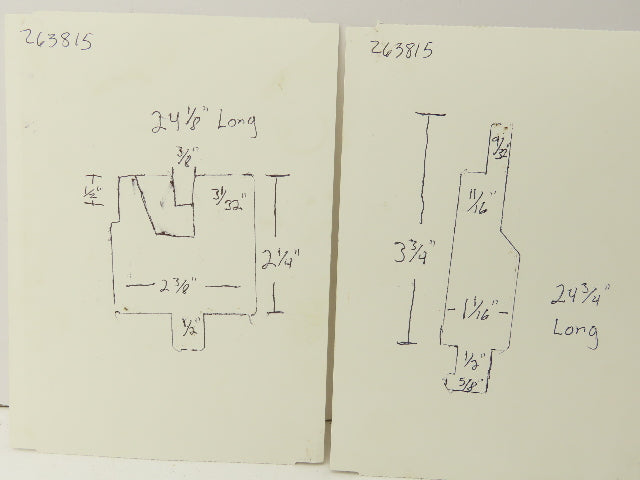 263815
24 1/8" Long
3/8"
1/2"
31/32"
2 1/4"
2 3/8"
1/2"
263815
9/32"
11/16"
3 3/4"
1 1/16"
24 3/4"
Long
1/2"
5/8"